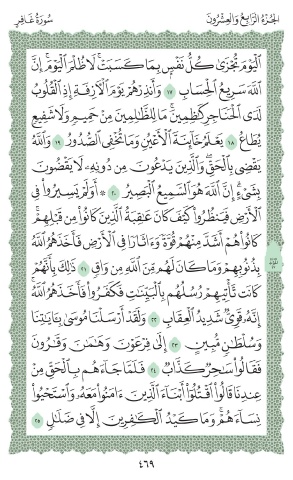 الجزء الرابع والعشرون
سورة غافر
ٱلۡيَوۡمَ تُجۡزَىٰ كُلُّ نَفۡسِۭ بِمَا كَسَبَتۡۚ لَا ظُلۡمَ ٱلۡيَوۡمَۚ إِنَّ
ٱللَّهَ سَرِيعُ ٱلۡحِسَابِ ١٧ وَأَنذِرۡهُمۡ يَوۡمَ ٱلۡأٓزِفَةِ إِذِ ٱلۡقُلُوبُ
لَدَى ٱلۡحَنَاجِرِ كَٰظِمِينَۚ مَا لِلظَّٰلِمِينَ مِنۡ حَمِيمٖ وَلَا شَفِيعٖ
يُطَاعُ ١٨ يَعۡلَمُ خَآئِنَةَ ٱلۡأَعۡيُنِ وَمَا تُخۡفِي ٱلصُّدُورُ ١٩ وَٱللَّهُ
يَقۡضِي بِٱلۡحَقِّۖ وَٱلَّذِينَ يَدۡعُونَ مِن دُونِهِۦ لَا يَقۡضُونَ
بِشَيۡءٍۗ إِنَّ ٱللَّهَ هُوَ ٱلسَّمِيعُ ٱلۡبَصِيرُ ٢٠ ۞ أَوَلَمۡ يَسِيرُواْ فِي
ٱلۡأَرۡضِ فَيَنظُرُواْ كَيۡفَ كَانَ عَٰقِبَةُ ٱلَّذِينَ كَانُواْ مِن قَبۡلِهِمۡۚ
كَانُواْ هُمۡ أَشَدَّ مِنۡهُمۡ قُوَّةٗ وَءَاثَارٗا فِي ٱلۡأَرۡضِ فَأَخَذَهُمُ ٱللَّهُ
بِذُنُوبِهِمۡ وَمَا كَانَ لَهُم مِّنَ ٱللَّهِ مِن وَاقٖ ٢١ ذَٰلِكَ بِأَنَّهُمۡ
كَانَت تَّأۡتِيهِمۡ رُسُلُهُم بِٱلۡبَيِّنَٰتِ فَكَفَرُواْ فَأَخَذَهُمُ ٱللَّهُۚ
إِنَّهُۥ قَوِيّٞ شَدِيدُ ٱلۡعِقَابِ ٢٢ وَلَقَدۡ أَرۡسَلۡنَا مُوسَىٰ بِـَٔايَٰتِنَا
وَسُلۡطَٰنٖ مُّبِينٍ ٢٣ إِلَىٰ فِرۡعَوۡنَ وَهَٰمَٰنَ وَقَٰرُونَ
فَقَالُواْ سَٰحِرٞ كَذَّابٞ ٢٤ فَلَمَّا جَآءَهُم بِٱلۡحَقِّ مِنۡ
عِندِنَا قَالُواْ ٱقۡتُلُوٓاْ أَبۡنَآءَ ٱلَّذِينَ ءَامَنُواْ مَعَهُۥ وَٱسۡتَحۡيُواْ
نِسَآءَهُمۡۚ وَمَا كَيۡدُ ٱلۡكَٰفِرِينَ إِلَّا فِي ضَلَٰلٖ ٢٥
٤٦٩